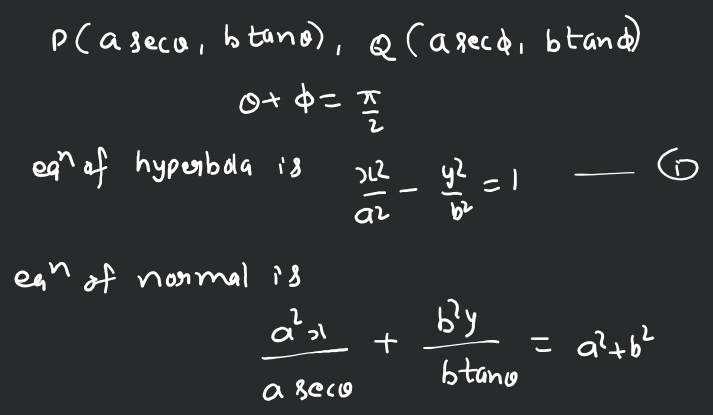 P(a secθ, b tanθ), Q(a secφ, b tanφ)
θ + φ = π/2
eqⁿ of hyperbola is x²/a² - y²/b² = 1 —— ①
eqⁿ of normal is
a²x/(a secθ) + b²y/(b tanθ) = a²+b²